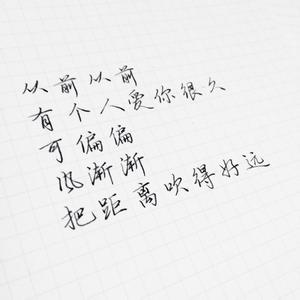 以前以前
有个人爱你很久
可偏偏
风渐渐
把距离吹得好远